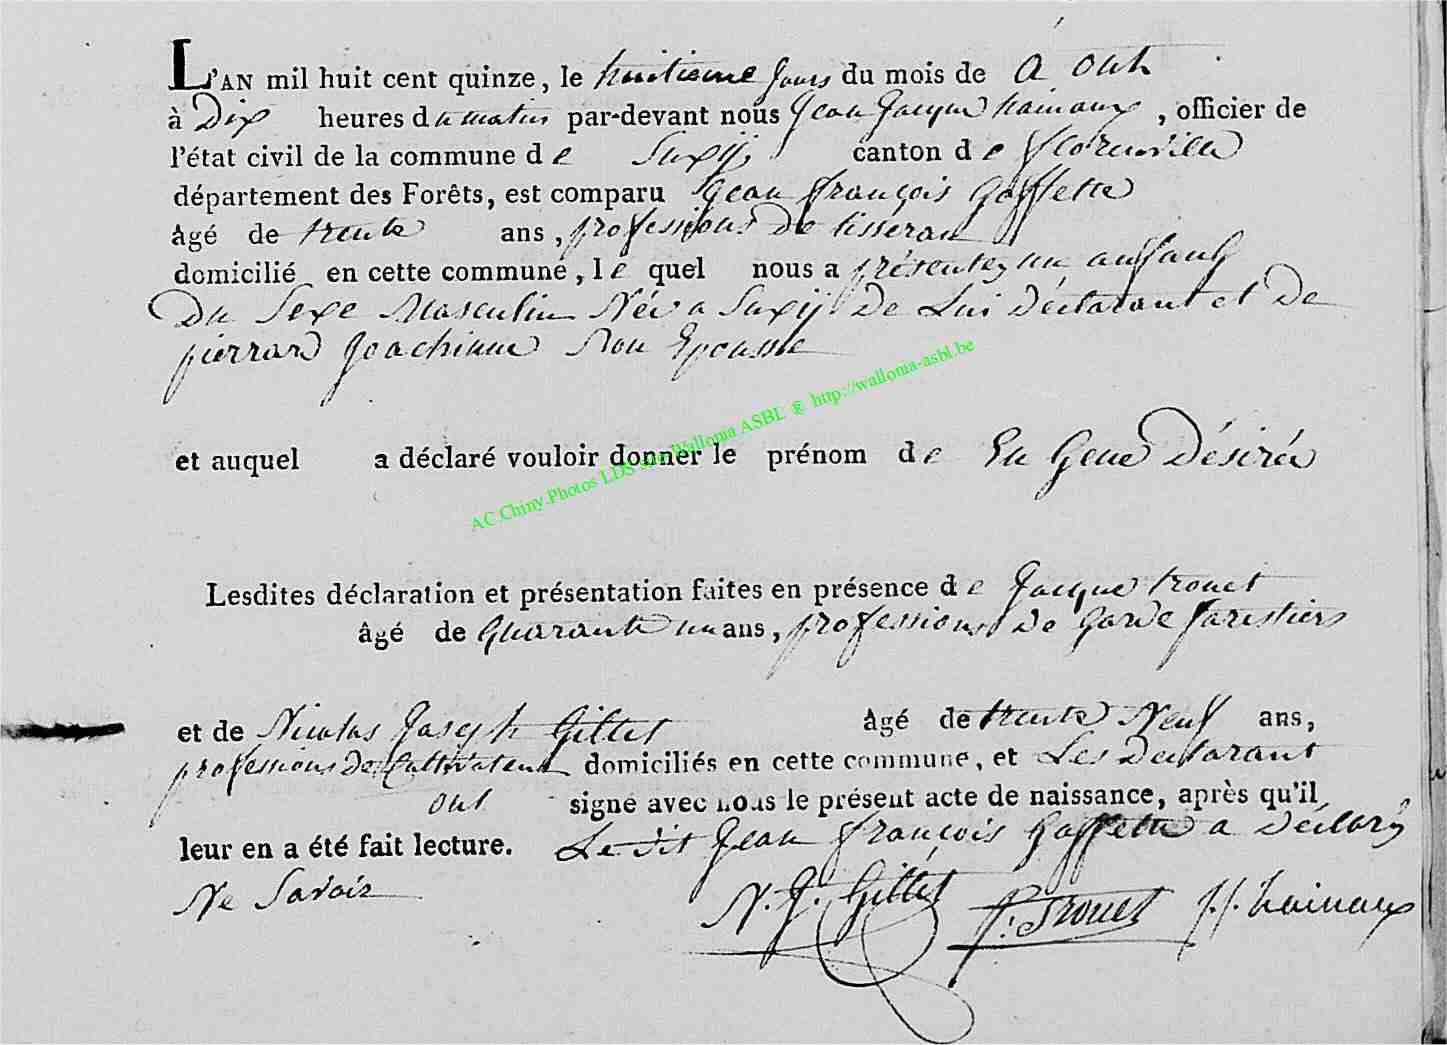 L'AN mil huit cent quinze, le huitieme jours du mois de Aout
à Dix heures du matin par-devant nous Jean Jacque hainaux, officier de
l'état civil de la commune de Suxij canton de florenville
département des Forêts, est comparu Jean françois Goffette
âgé de trente ans, professions De tisseran
domicilié en cette commune, le quel nous a présentez un anfant
Du Sexe Masculin Née a Suxij De Lui Déclarant et De
pierrard Joachime Son Epousse
et auquel a déclaré vouloir donner le prénom de Eu Gene Désirée
AC.Chiny.Photos LDS site Wallonia ASBL @ http://wallonia-asbl.be
Lesdites déclaration et présentation faites en présence de Jacque trouet
âgé de Quarante un ans, professions De Garde farestiers
et de Nicolas Joseph Gillet âgé de trente Neuf ans,
professions De Cultivateur domiciliés en cette commune, et Les Declarant
ont signé avec nous le présent acte de naissance, après qu'il
leur en a été fait lecture. Le dit Jean françois Goffette a Déclaré
Ne Savoir
N. J. Gillet J. Trouet J. J. hainaux